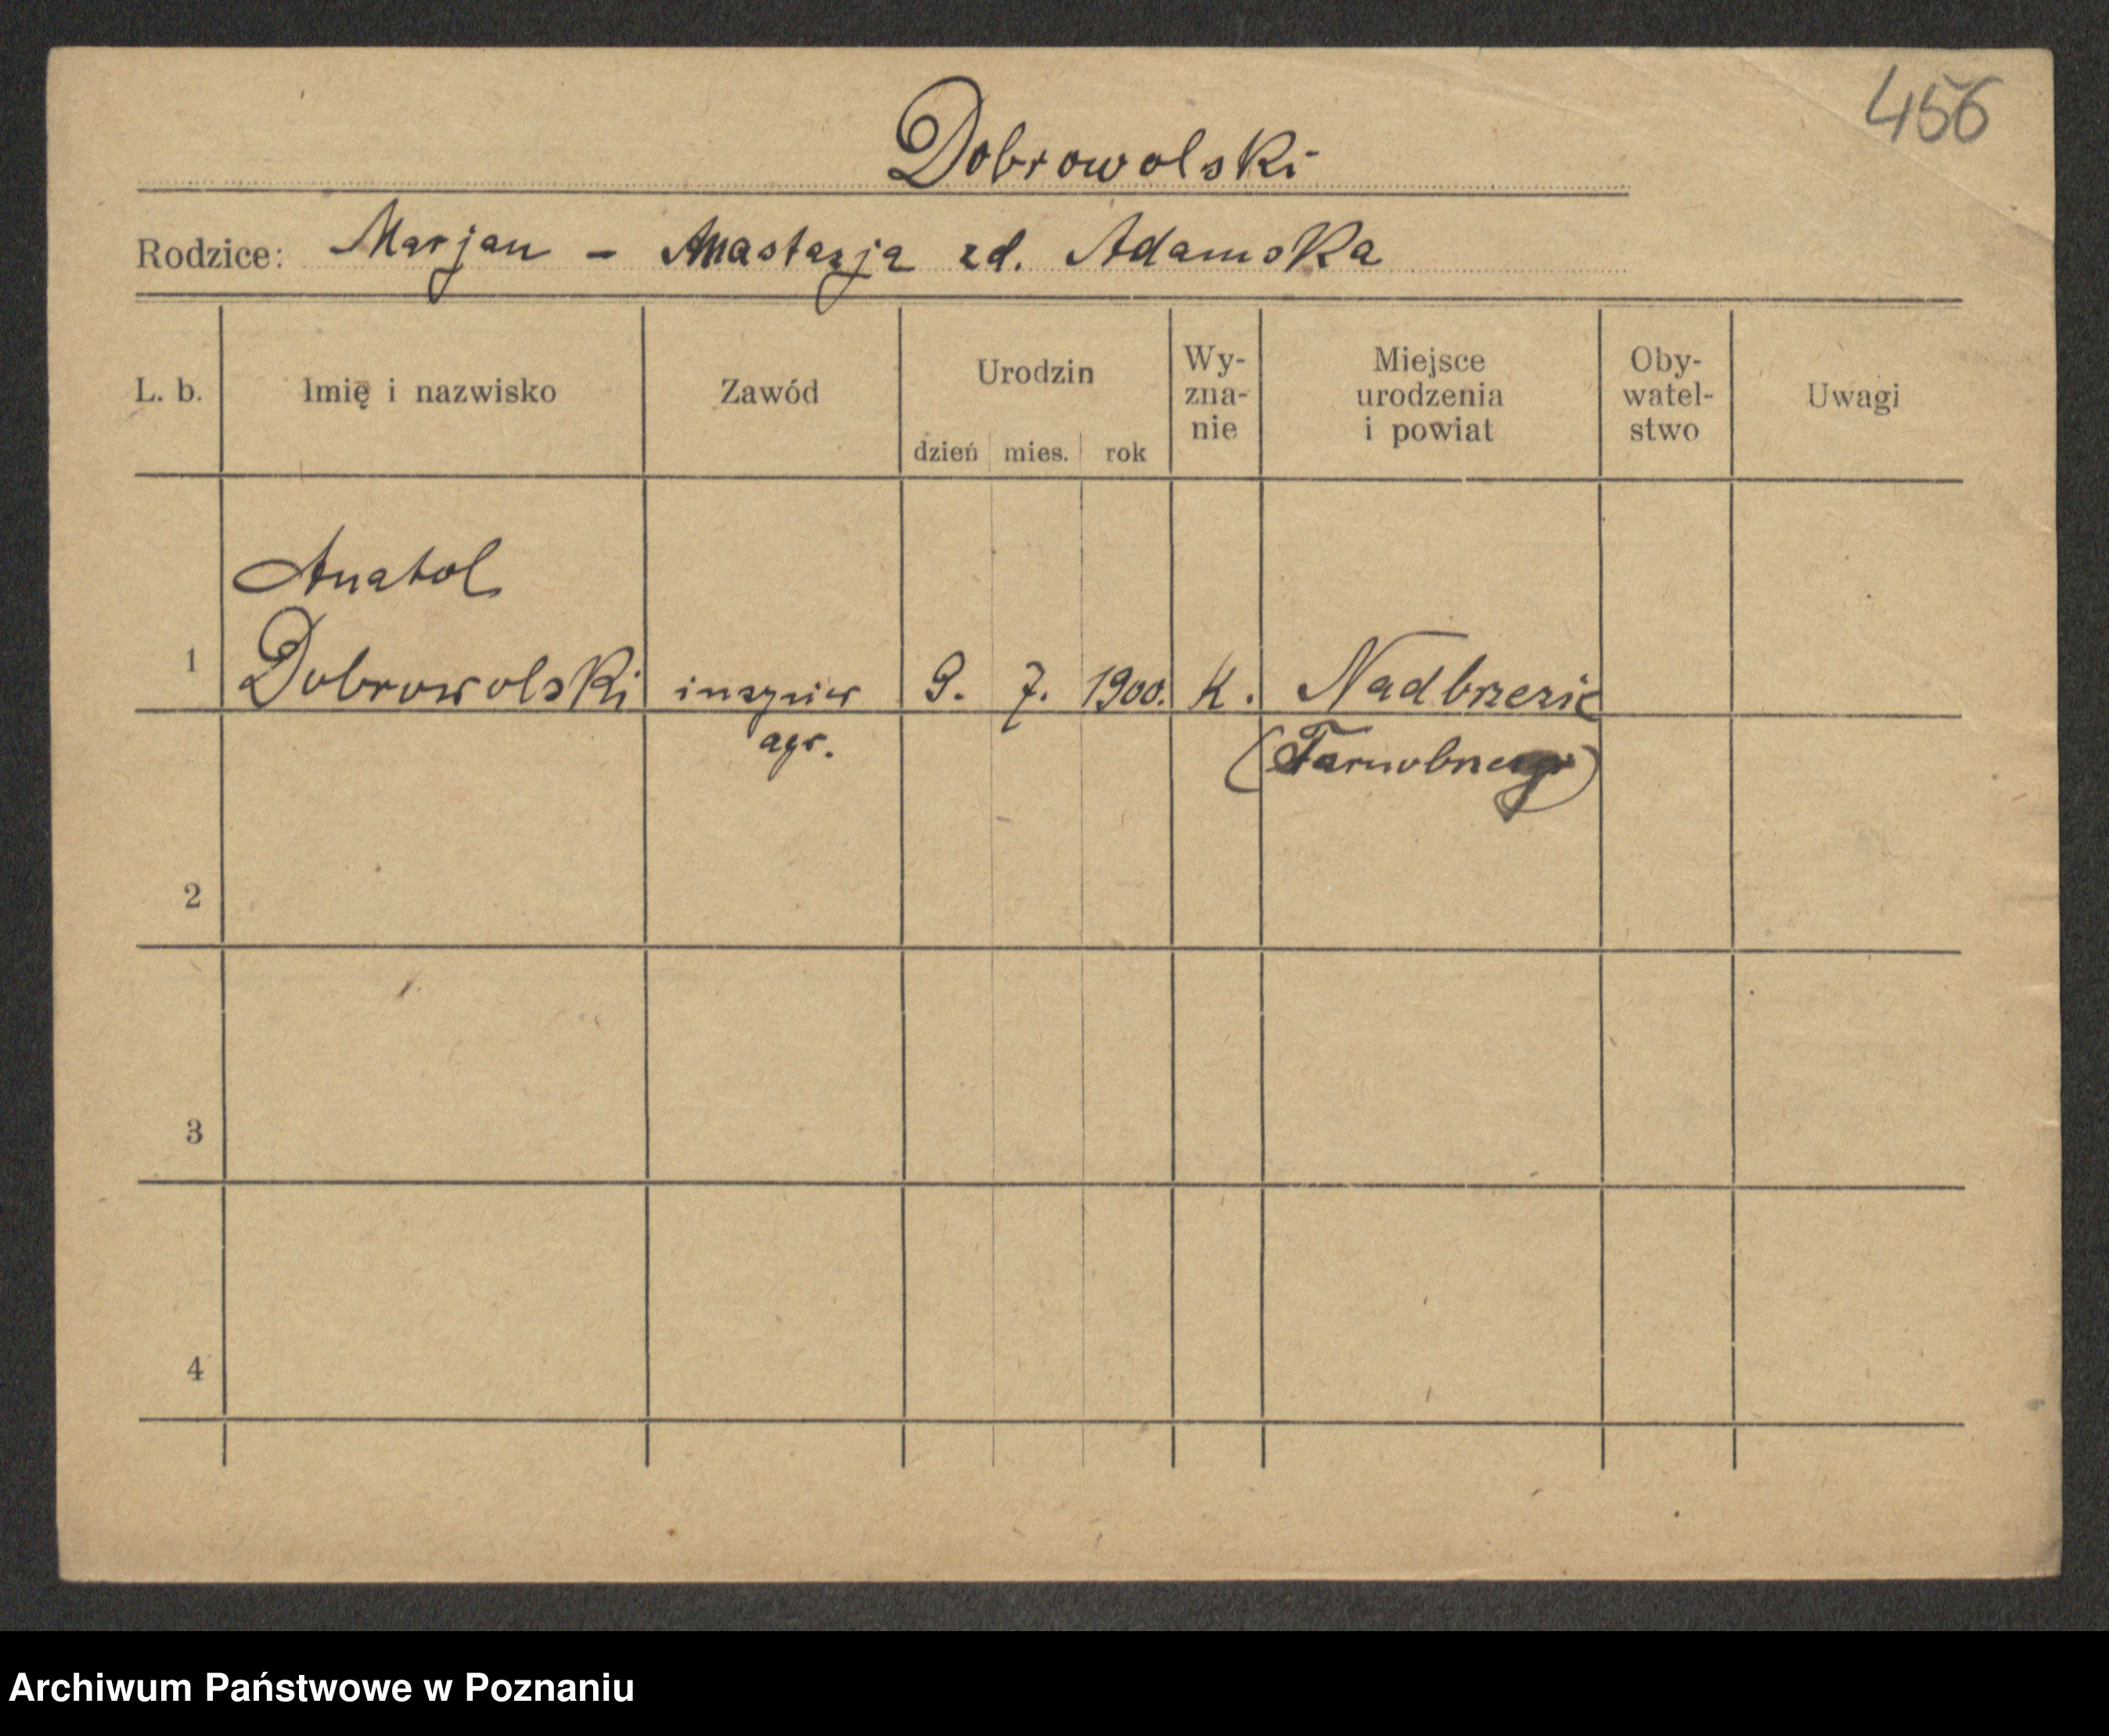 456
Dobrowolski
Rodzice: Marjan - Anastazja zd. Adamska
L. b.
Imię i nazwisko
Zawód
Urodzin
dzień mies. rok
Wy-
zna-
nie
Miejsce
urodzenia
i powiat
Oby-
watel-
stwo
Uwagi
Anatol
1 Dobrowolski inżynier 9. 7. 1900. K. Nadbrzezie
agr. (Tarnobrzeg)
2
3
4
Archiwum Państwowe w Poznaniu